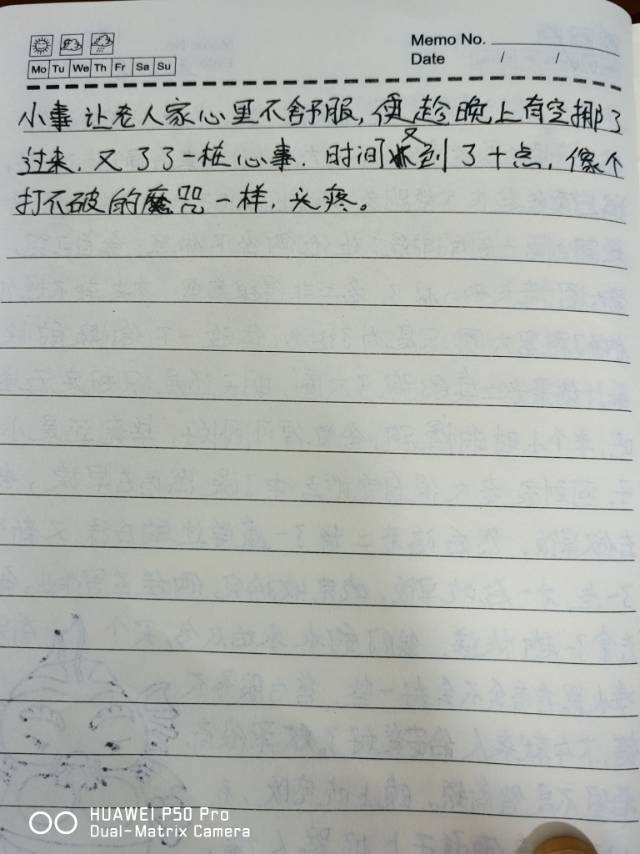 Memo No.
Mo Tu We Th Fr Sa Su
Date / /
小事让老人家心里不舒服,便趁晚上有空挪了
过来,又了了一桩心事.时间又到了十点,像个
打不破的魔咒一样,头疼。
HUAWEI P50 Pro
Dual-Matrix Camera